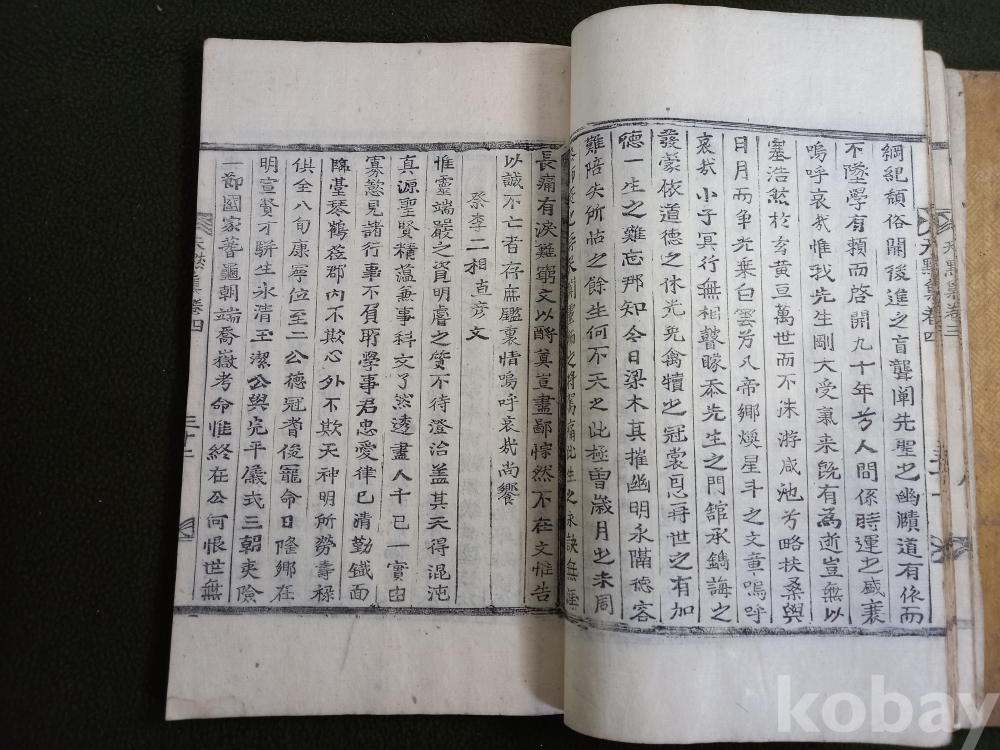 綱紀頹俗開後進之盲聾闡先聖之幽賾道有依而
不墜學有賴而啓開九十年兮人間係時運之盛衰
嗚呼哀哉惟我先生剛大受氣来旣有為逝豈無以
塞浩然於玄黄亘萬世而不洙游咸池兮略扶桑與
日月而争光乗白雲兮入帝鄉煥星斗之文章嗚呼
哀哉小子冥行無相瞽矇忝先生之門舘承鐫誨之
發蒙依道德之休光免禽犢之冠裳恩再世之有加
德一生之難忘那知今日梁木其摧幽明永隔德容
難陪失所怙之餘生何不天之此極曾歳月之未周
之永訣無
長痛有淚難窮文以酹奠豈盡鄙悰然不在文惟告
以誠不亡者存庶鑑衷情嗚呼哀哉尚饗
祭李二相直彦文
惟靈端嚴之資明睿之質不待澄治盖其天得混沌
真源聖賢精蘊兼事科文了然透盡人千已一實由
寡慾見諸行事不負所學事君忠愛律已清勤鐵面
臨臺琴鶴莅郡内不欺心外不欺天神明所勞壽祿
俱全八旬康寧位至二公德冠耆俊寵命日隆鄉在
明宣賢才騈生氷清玉潔公與完平儀式三朝夷險
一節國家蓍龜朝端喬嶽考命惟終在公何恨世無
天默集卷四
三十二
天默集卷三
天默集卷四
kobay